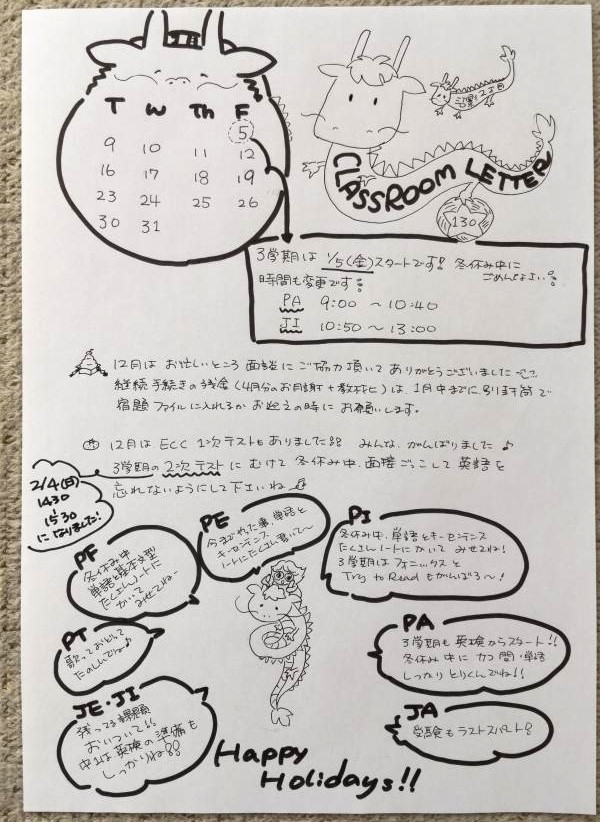 T W Th F
5
9 10 11 12
16 17 18 19
23 24 25 26
30 31
CLASSROOM LETTER
130
3学期は 1/5(金)スタートです!! 冬休み中に
ごめんなさい
時間も変更です
PA 9:00 ～ 10:40
JI 10:50 ～ 13:00
12月は お忙しいところ 面談に ご協力頂いて ありがとうございました
継続手続きの残金(4月分のお月謝+教材ヒ)は、1月中までに
宿題ファイルに入れるか お迎えの時に お願いします。
12月は ECC 1次テストも ありました!! みんな、がんばりました♪
3学期の 2次テスト にむけて 冬休み中、面接ごっこして 英語を
忘れないようにして下さいね
2/4(日)
1430
～
1530
になりました!
PF
冬休み中
単語と基本文型
たくさんノートに
かいて
みせてねー
PE
今までやった事、単語と
キーセンテンス
ノートにたくさん書いて～
PI
冬休み中、単語とキーセンテンス
たくさんノートにかいて みせてね!
3学期は フォニックスと
Try to Read もがんばろ～!
PT
歌っておどって
たのしんでね♪
PA
3学期も 英検からスタート!!
冬休み中に カコ問・単語
しっかり とりくんでね!!
JE・JI
残ってる課題
おいついて!!
中1は 英検の準備も
しっかりね!!
JA
受験もラストスパート!!
Happy
Holidays!!